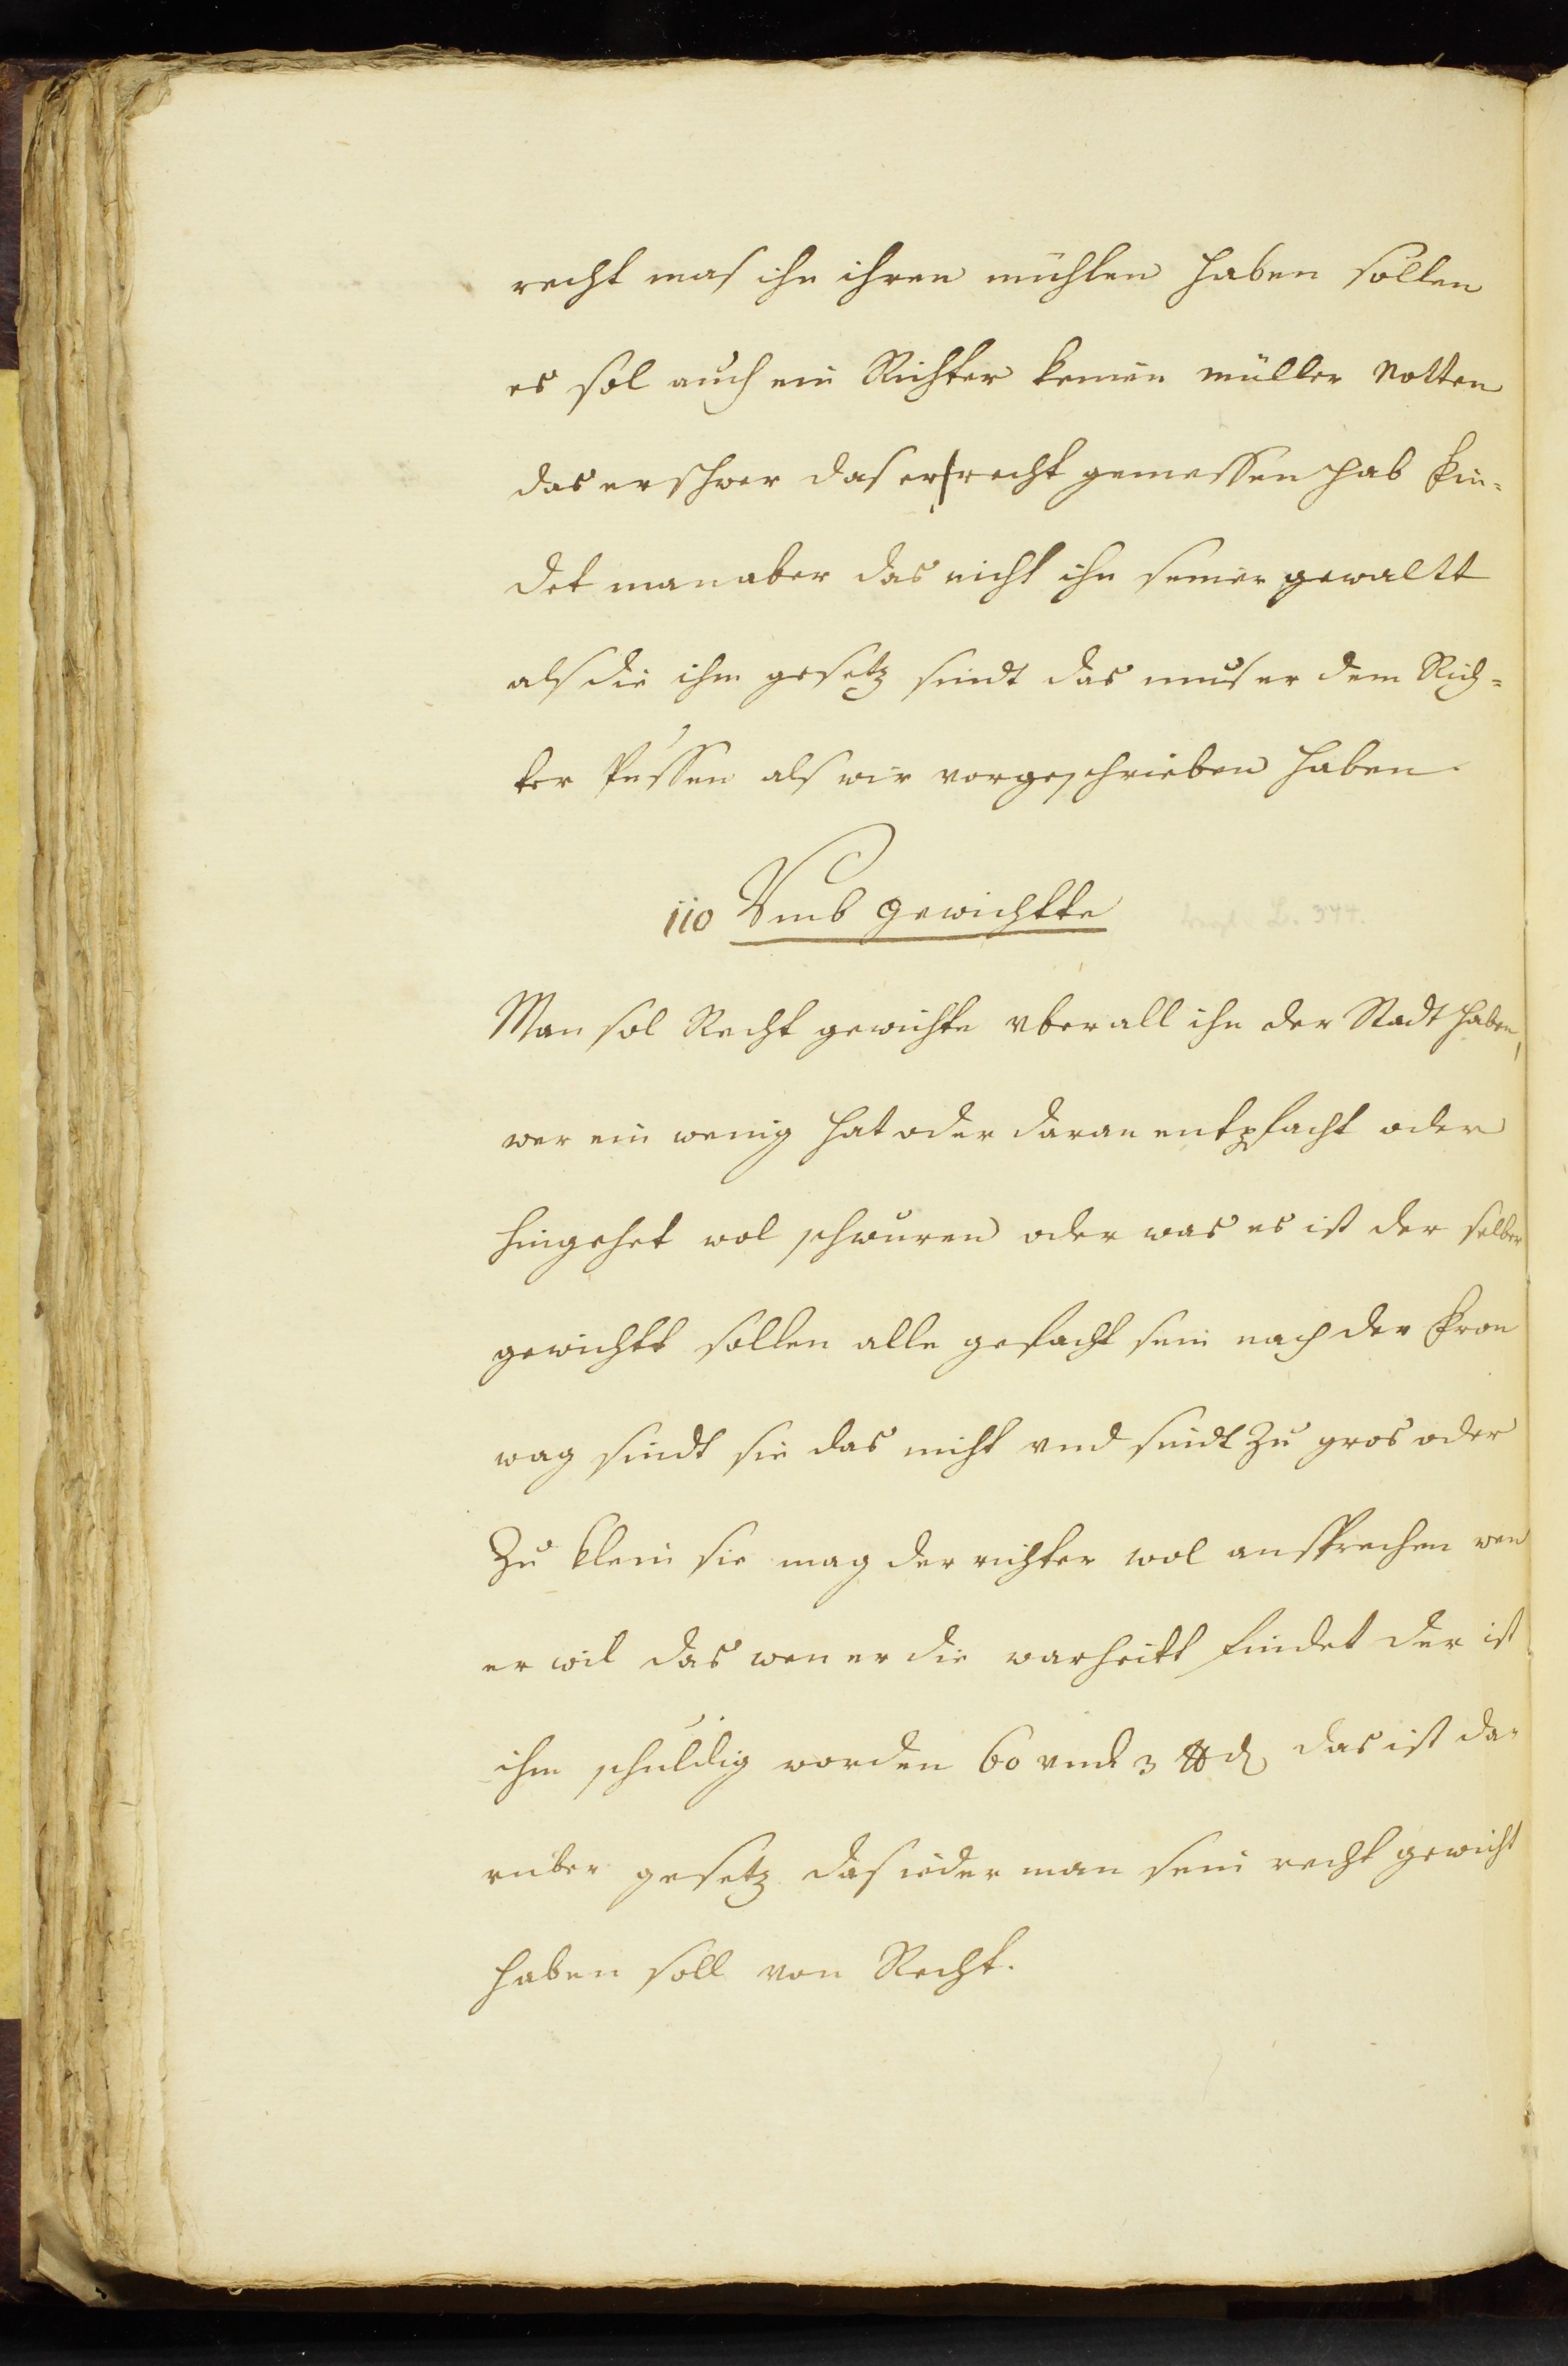 recht mas ihn ihren mühlen haben sollen
es sol auch ein Richter keinen müller notten
das er schwer das er recht gemessen hab fin=
det man aber das nicht ihn seiner gewaltt
als die ihm gesetz sindt das mus er dem Rich=
ter püssen als wir vorgeschrieben haben.
110 Vmb gewichtte
Man sol Recht gewichte vberall ihn der Stadt haben,
wer ein wenig hat oder daran entpfacht oder
hingehet wol schwuren oder was es ist der selber
gewichtt sollen alle gefacht sein nach der fron
wag sindt sie das nicht vnd sindt zu gros oder
Zu klein sie mag der richter wol ansprechen wen
er wil das wen er die warheitt findet der ist
ihm schuldig worden 60 vnd 3 ℔ ₰ das ist da=
rüber gesetz das ieder man sein recht gewicht
haben soll von Recht.
L. 344.